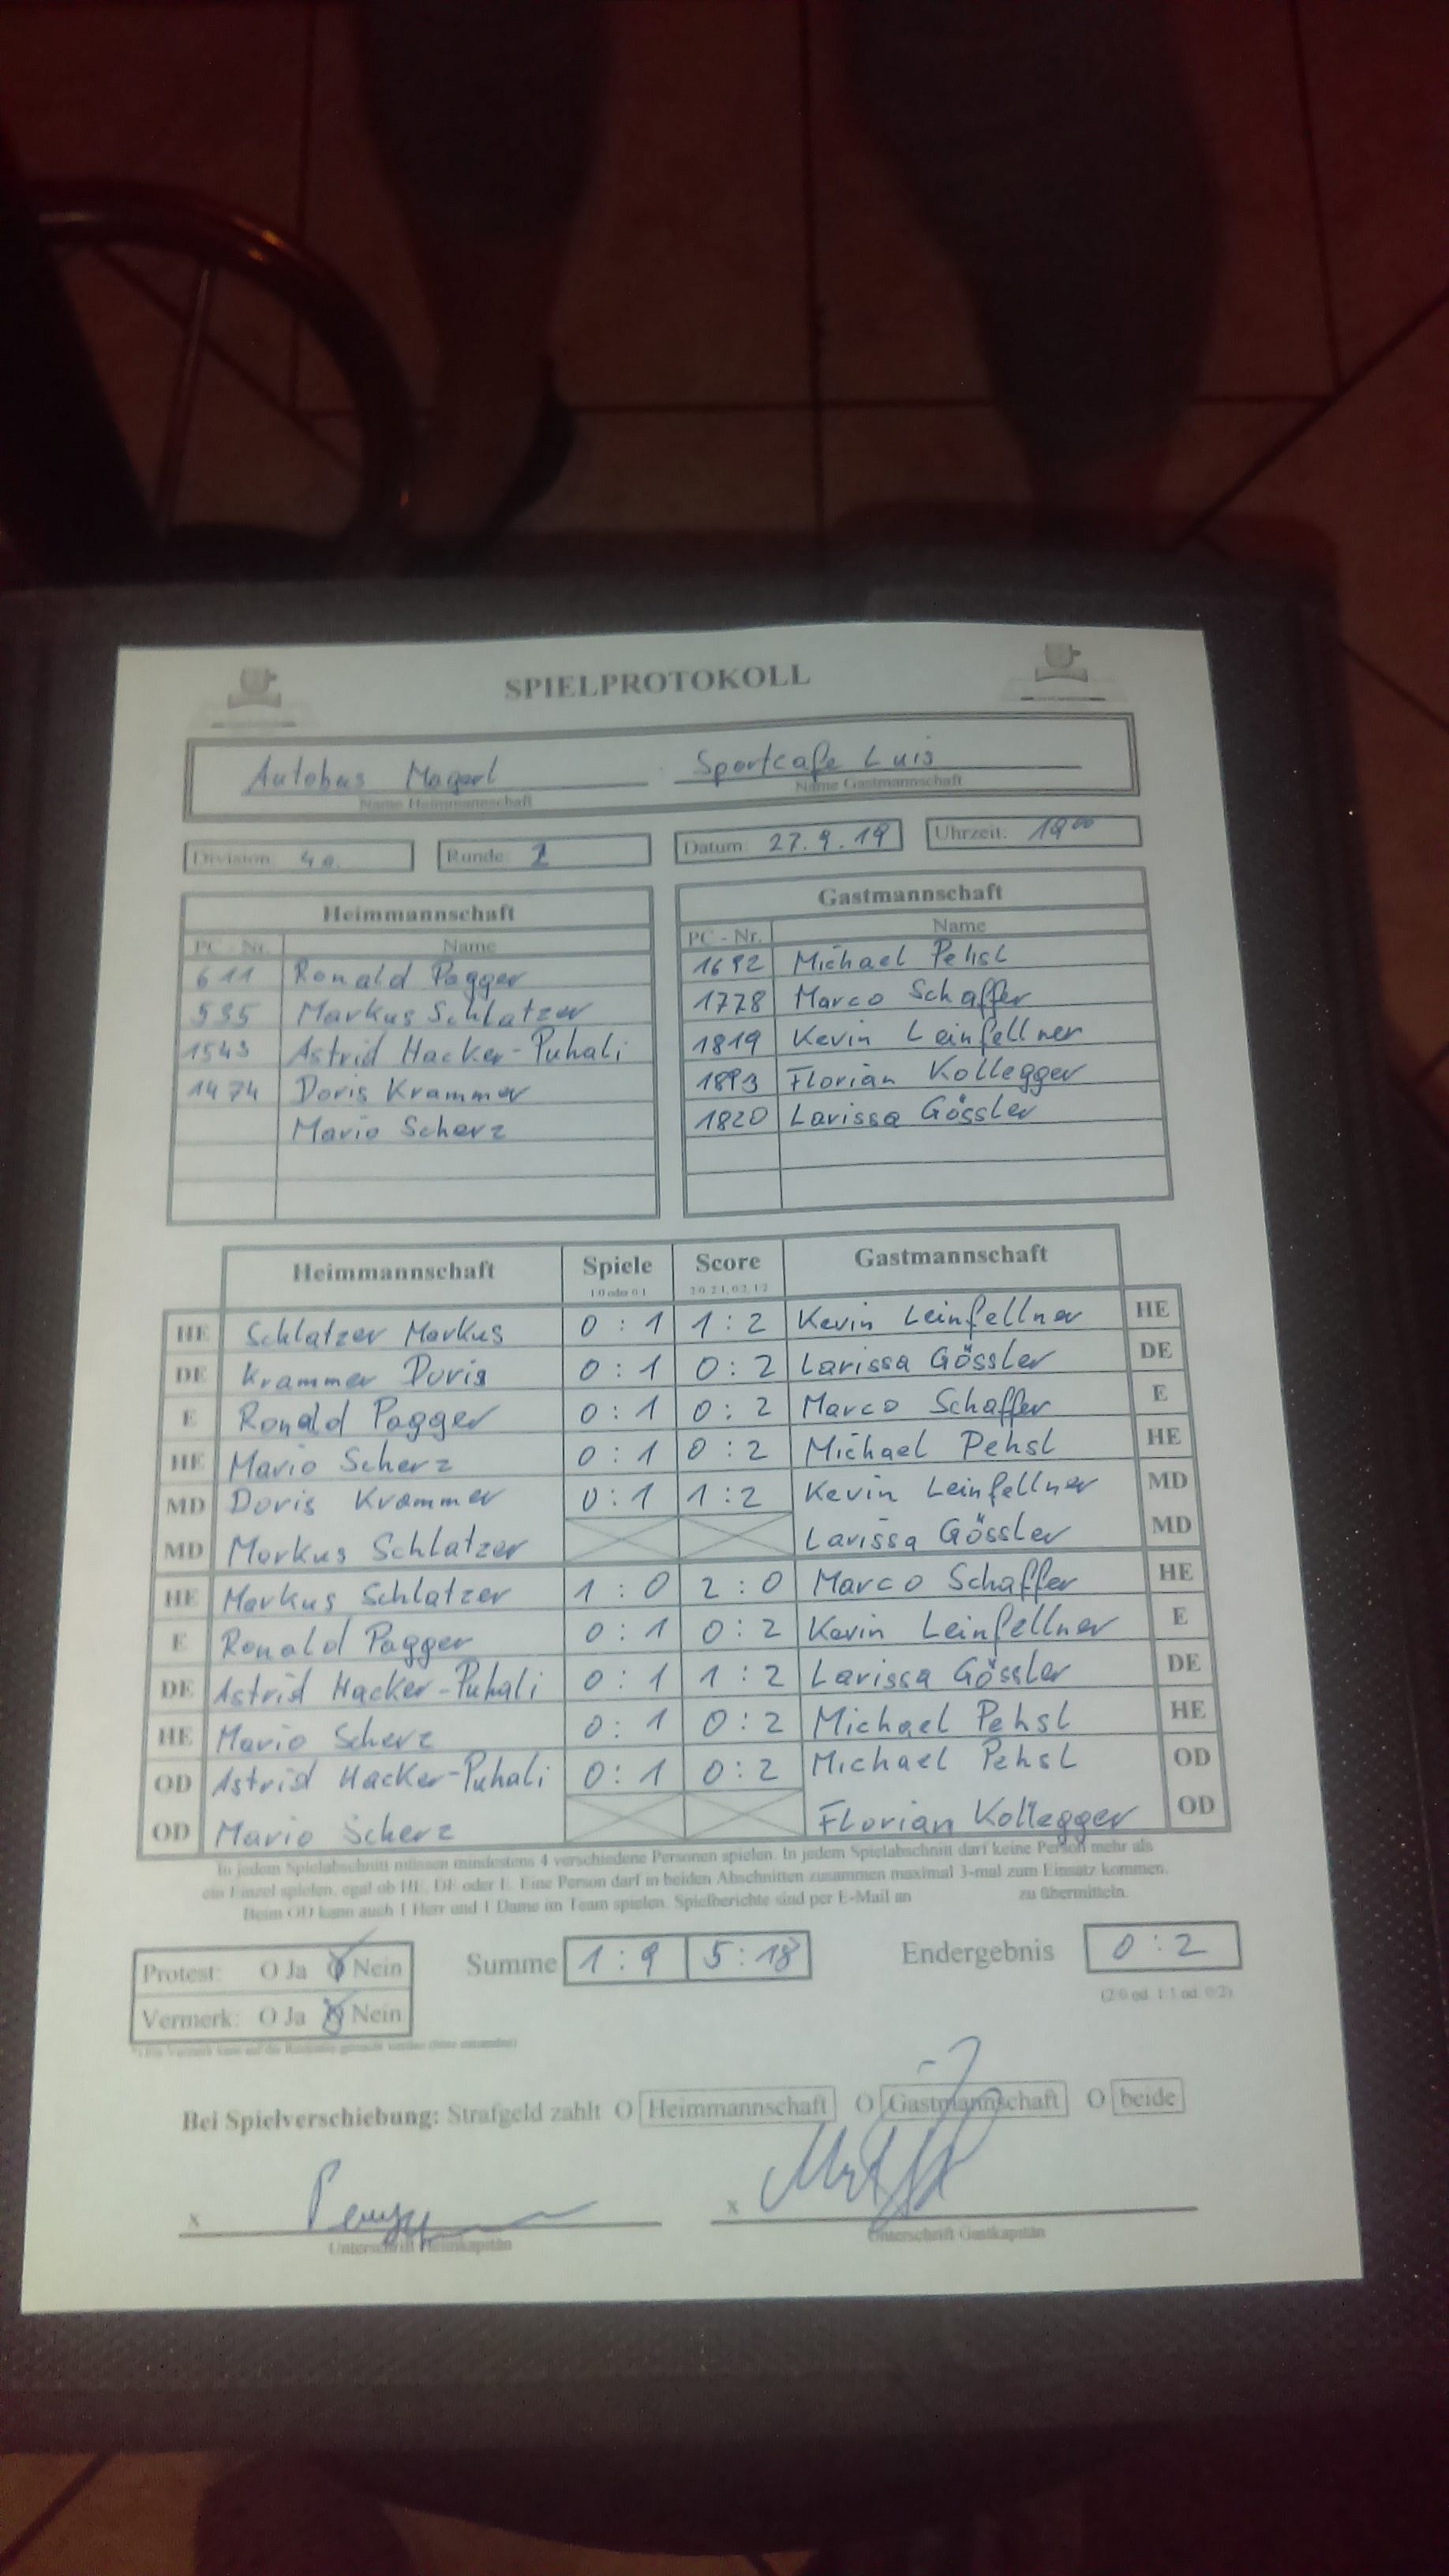 SPIELPROTOKOLL
Autobus Magerl Sportcafe Luis
Name Heimmannschaft Name Gastmannschaft
Division: 4a. Runde: Datum: 27.9.19 Uhrzeit: 19⁰⁰
Heimmannschaft Gastmannschaft
PC - Nr. Name PC - Nr. Name
611 Ronald Pagger 1692 Michael Pehsl
535 Markus Schlatzer 1778 Marco Schaffer
1543 Astrid Hacker-Puhali 1819 Kevin Leinfellner
1474 Doris Krammer 1893 Florian Kollegger
Mario Scherz 1820 Larissa Gössler
Heimmannschaft Spiele Score Gastmannschaft
1:0 oder 0:1 2:0, 2:1, 0:2, 1:2
HE Schlatzer Markus 0 : 1 1 : 2 Kevin Leinfellner HE
DE Krammer Doris 0 : 1 0 : 2 Larissa Gössler DE
E Ronald Pagger 0 : 1 0 : 2 Marco Schaffer E
HE Mario Scherz 0 : 1 0 : 2 Michael Pehsl HE
MD Doris Krammer 0 : 1 1 : 2 Kevin Leinfellner MD
MD Markus Schlatzer Larissa Gössler MD
HE Markus Schlatzer 1 : 0 2 : 0 Marco Schaffer HE
E Ronald Pagger 0 : 1 0 : 2 Kevin Leinfellner E
DE Astrid Hacker-Puhali 0 : 1 1 : 2 Larissa Gössler DE
HE Mario Scherz 0 : 1 0 : 2 Michael Pehsl HE
OD Astrid Hacker-Puhali 0 : 1 0 : 2 Michael Pehsl OD
OD Mario Scherz Florian Kollegger OD
In jedem Spielabschnitt müssen mindestens 4 verschiedene Personen spielen. In jedem Spielabschnitt darf keine Person mehr als
ein Einzel spielen, egal ob HE, DE oder E. Eine Person darf in beiden Abschnitten zusammen maximal 3-mal zum Einsatz kommen.
Beim OD kann auch 1 Herr und 1 Dame im Team spielen. Spielberichte sind per E-Mail an zu übermitteln.
Protest: O Ja O Nein Summe 1 : 9 5 : 18 Endergebnis 0 : 2
Vermerk: O Ja O Nein (2:0 od. 1:1 od. 0:2)
Bei Spielverschiebung: Strafgeld zahlt O Heimmannschaft O Gastmannschaft O beide
x x
Unterschrift Heimkapitän Unterschrift Gastkapitän